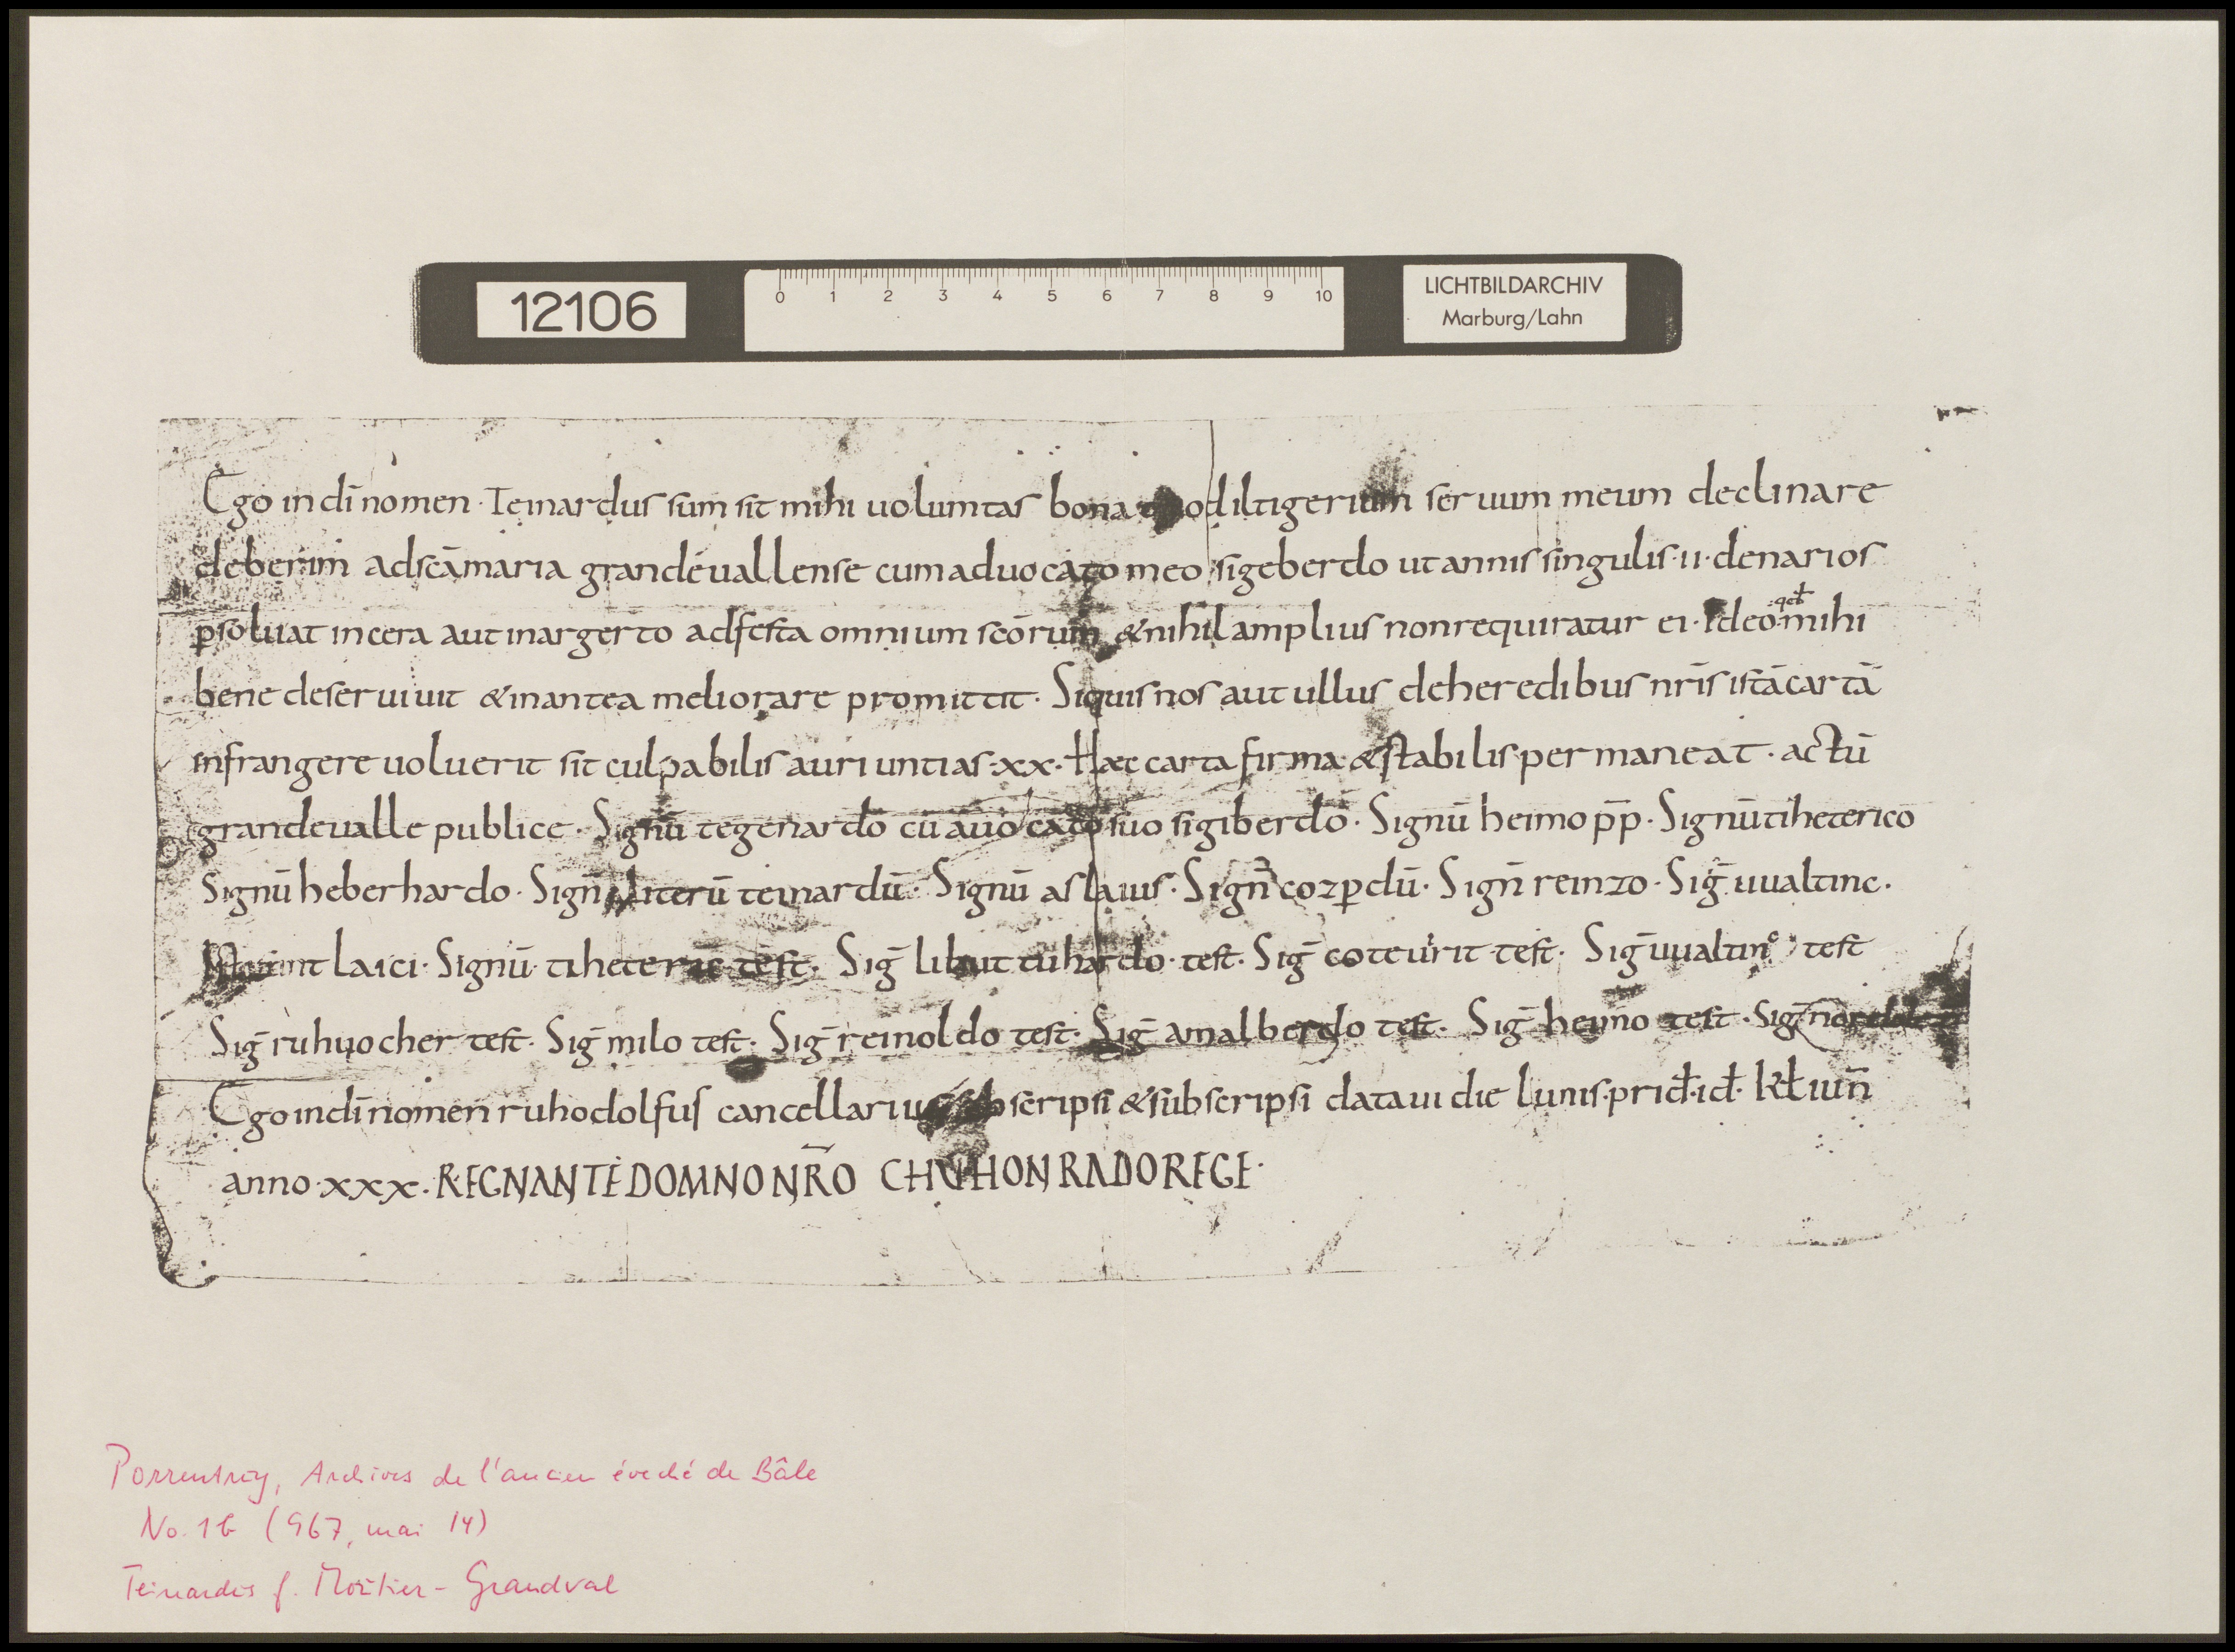 12106
0 1 2 3 4 5 6 7 8 9 10
LICHTBILDARCHIV
Marburg/Lahn
Ego in dī nomen · Teinardus sum sit mihi uolumtas bona quod iltigerium seruum meum declinare
deberim ad scāmaria grandeuallense cum aduocato meo sigeberdo ut annis singulis · ii · denarios
psoluat in cera aut in argerto ad festa omnium scōrum & nihil amplius non requiratur ei · Ideo qđ mihi
bene deseruiuit & inantea meliorare promittit · Siquis nos aut ullus de heredibus nrīs istā cartā
infrangere uoluerit sit culpabilis auri untias · xx · Haec carta firma & stabilis permaneat · actū
grandeualle publice · Signū tegenardo cū auocato suo sigiberdo · Signū heimo p̄p · Signū tiheterico
Signū heberhardo · Sign̄ iterū teinardū · Signū aslauis · Sign̄ cozpdū · Sign̄ reinzo · Siḡ uualtinc ·
laici · Signū · tiheteric test · Siḡ tuhardo · test · Siḡ coteurit test · Siḡ uualtino test
Siḡ ruhuocher test · Siḡ milo test · Siḡ reinoldo test · Siḡ amalberdo test · Siḡ heimo test · Siḡ
Ego in dī nomen ruhodolfus cancellarius scripsi & subscripsi dataui die lunis · priđ · iđ · kł iun̄
anno · xxx · REGNANTE DOMNO NR̄O CHUHONRADO REGE ·
Porrentruy, Archives de l'ancien évêché de Bâle
No. 1b (967, mai 14)
Teinardus f. Moûtier - Grandval